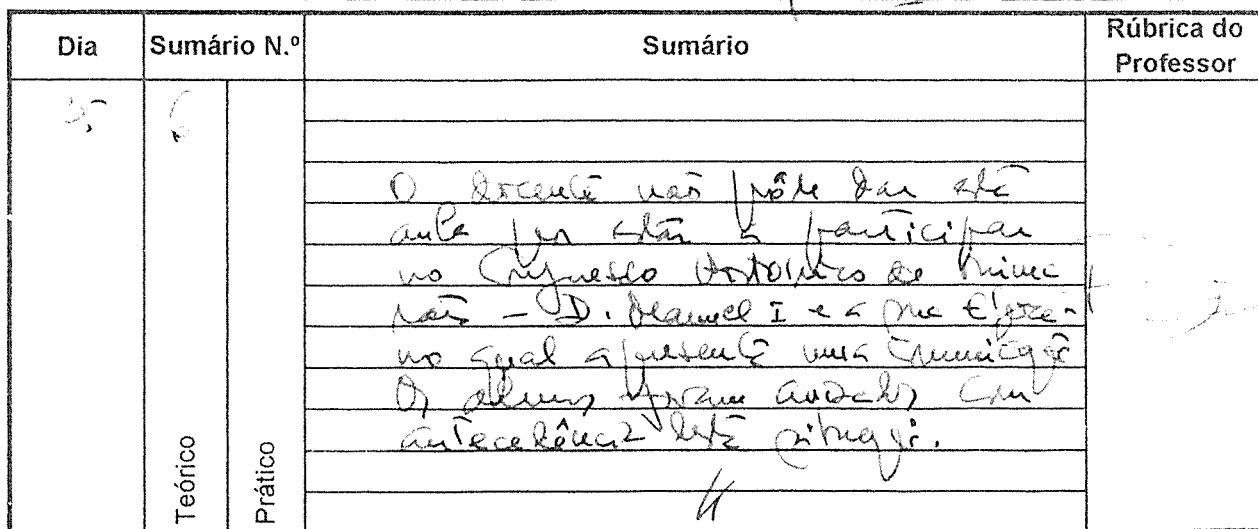 Dia Sumário N.º Sumário Rúbrica do Professor
O docente não pôde dar esta
aula por estar a participar
no Congresso Histórico de Guima
rães - D. Manuel I e a sua Época -
no qual apresenta uma comunicação
Os alunos foram avisados com
antecedência desta situação.
Teórico
Prático